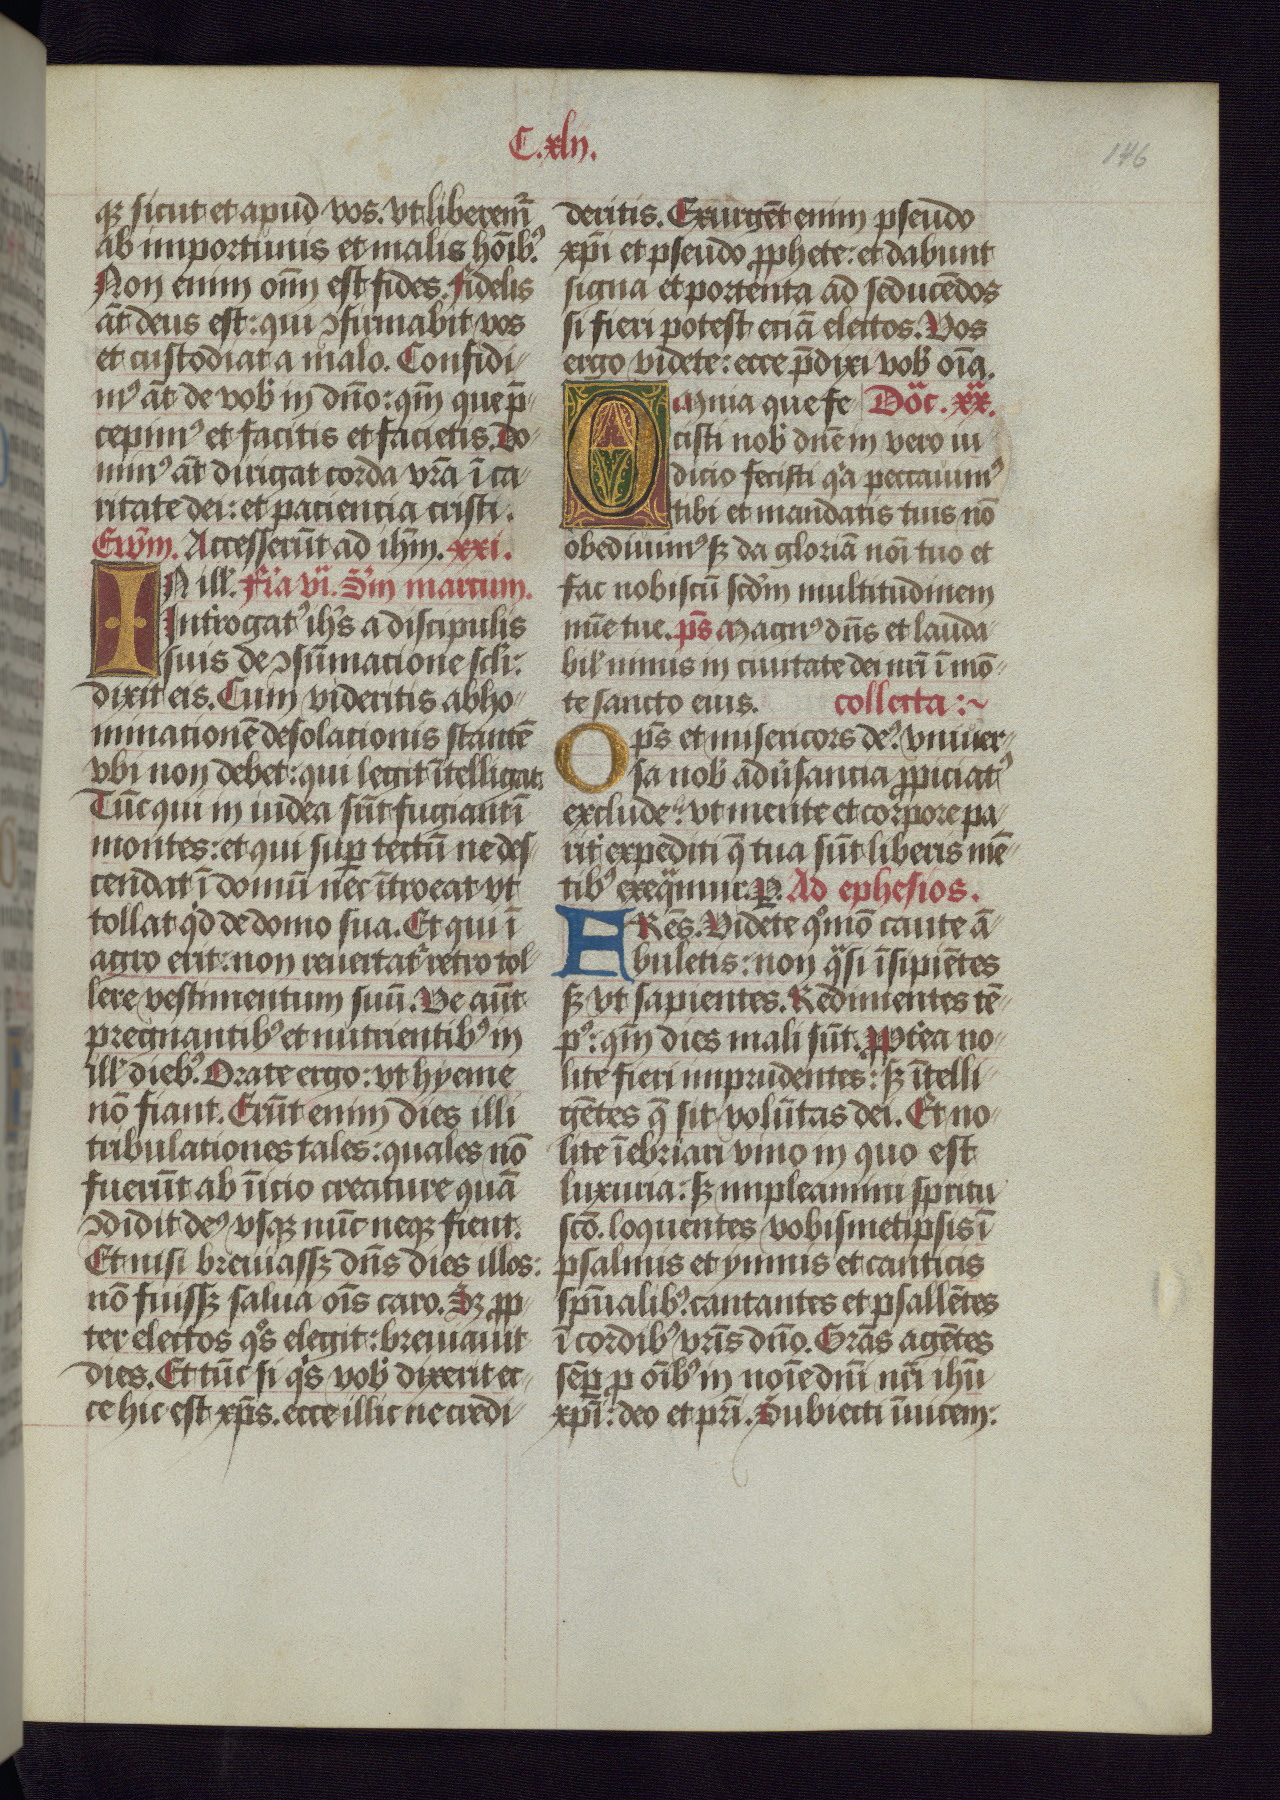 C.xlij.
146
qꝫ sicut et apud vos. vt liberem̃
ab importunis et malis hōibꝰ
Non enim oīm est fides. Fidelis
āt deus est: qui ↄfirmabit vos
et custodiat a malo. Confidi-
mꝰ āt de vob in dn̄o: qm̄ que p̄-
cepimꝰ et facitis et facietis. Do-
minꝰ āt dirigat corda vrā ī ca-
ritate dei: et paciencia cristi.
Ewm̄. Accesserūt ad ihm̄. xxi.
IN ill'. Fria vi. Sm̄ marcum.
Introgatꝰ ihs̄ a discipulis
suis de ↄsūmacione scli:
dixit eis. Cum videritis abho-
minationē desolationis stantē
vbi non debet: qui legit ītelligat.
Tūc qui in iudea sūt fugiant ī
montes: et qui suꝑ tectū ne des-
cendat ī domū nec ītroeat vt
tollat qd de domo sua. Et qui ī
agro erit: non reuertat̃ retro tol-
lere vestimentum suū. Ve aūt
pregnantibꝰ et nutrientibꝰ in
ill' diebꝰ. Orate ergo: vt hyeme
nō fiant. Erūt enim dies illi
tribulationes tales: quales nō
fuerūt ab īicio creature quā
ↄdidit deꝰ vsqꝫ nūc neqꝫ fient.
Et nisi breuiassꝫ dn̄s dies illos:
nō fuissꝫ salua oīs caro. Sꝫ ꝓp-
ter electos qos elegit: breuiauit
dies. Et tūc si qis vob dixerit ec-
ce hic est xp̄s. ecce illic ne credi-
deritis. Exurgēt enim pseudo
xp̄i et pseudo ꝓphete: et dabunt
signa et portenta ad seducēdos
si fieri potest eciā electos. Vos
ergo videte: ecce p̄dixi vob oīa.
OMnia que fe Dōc. xx.
cisti nob dn̄e in vero iu-
dicio fecisti qia peccauimꝰ
tibi et mandatis tuis nō
obediuimꝰ sꝫ da gloriā noī tuo et
fac nobiscū scdm̄ multitudinem
mīe tue. ps̄ Magnꝰ dn̄s et lauda-
bil' nimis in ciuitate dei nrī ī mō-
te sancto eius. collecta :~
Ops̄ et misericors deꝰ. vniuer-
sa nob adūsancia ꝓpiciatꝰ
exclude: vt mente et corpore pa-
rit̃ expediti q̄ tua sūt liberis mē-
tibꝰ exequamur. P. Ad ephesios.
FRēs. Videte qomō caute ā-
buletis: non quasi īsipiētes
sꝫ vt sapientes. Redimentes tē-
pꝰ: qm̄ dies mali sūt. ꝓptea no-
lite fieri imprudentes: sꝫ ītelli-
gētes q̄ sit volūtas dei. Et no-
lite īebriari vino in quo est
luxuria: sꝫ impleamini spritu
scō. loquentes vobismetipsis ī
psalmis et ymnis et canticis
spūalibꝰ. cantantes et psallētes
ī cordibꝰ vrīs dn̄o. Grās agētes
sēꝑ ꝓ oībꝰ in noīe dn̄i nrī ihū
xp̄i: deo et prī. Subiecti īuicem: